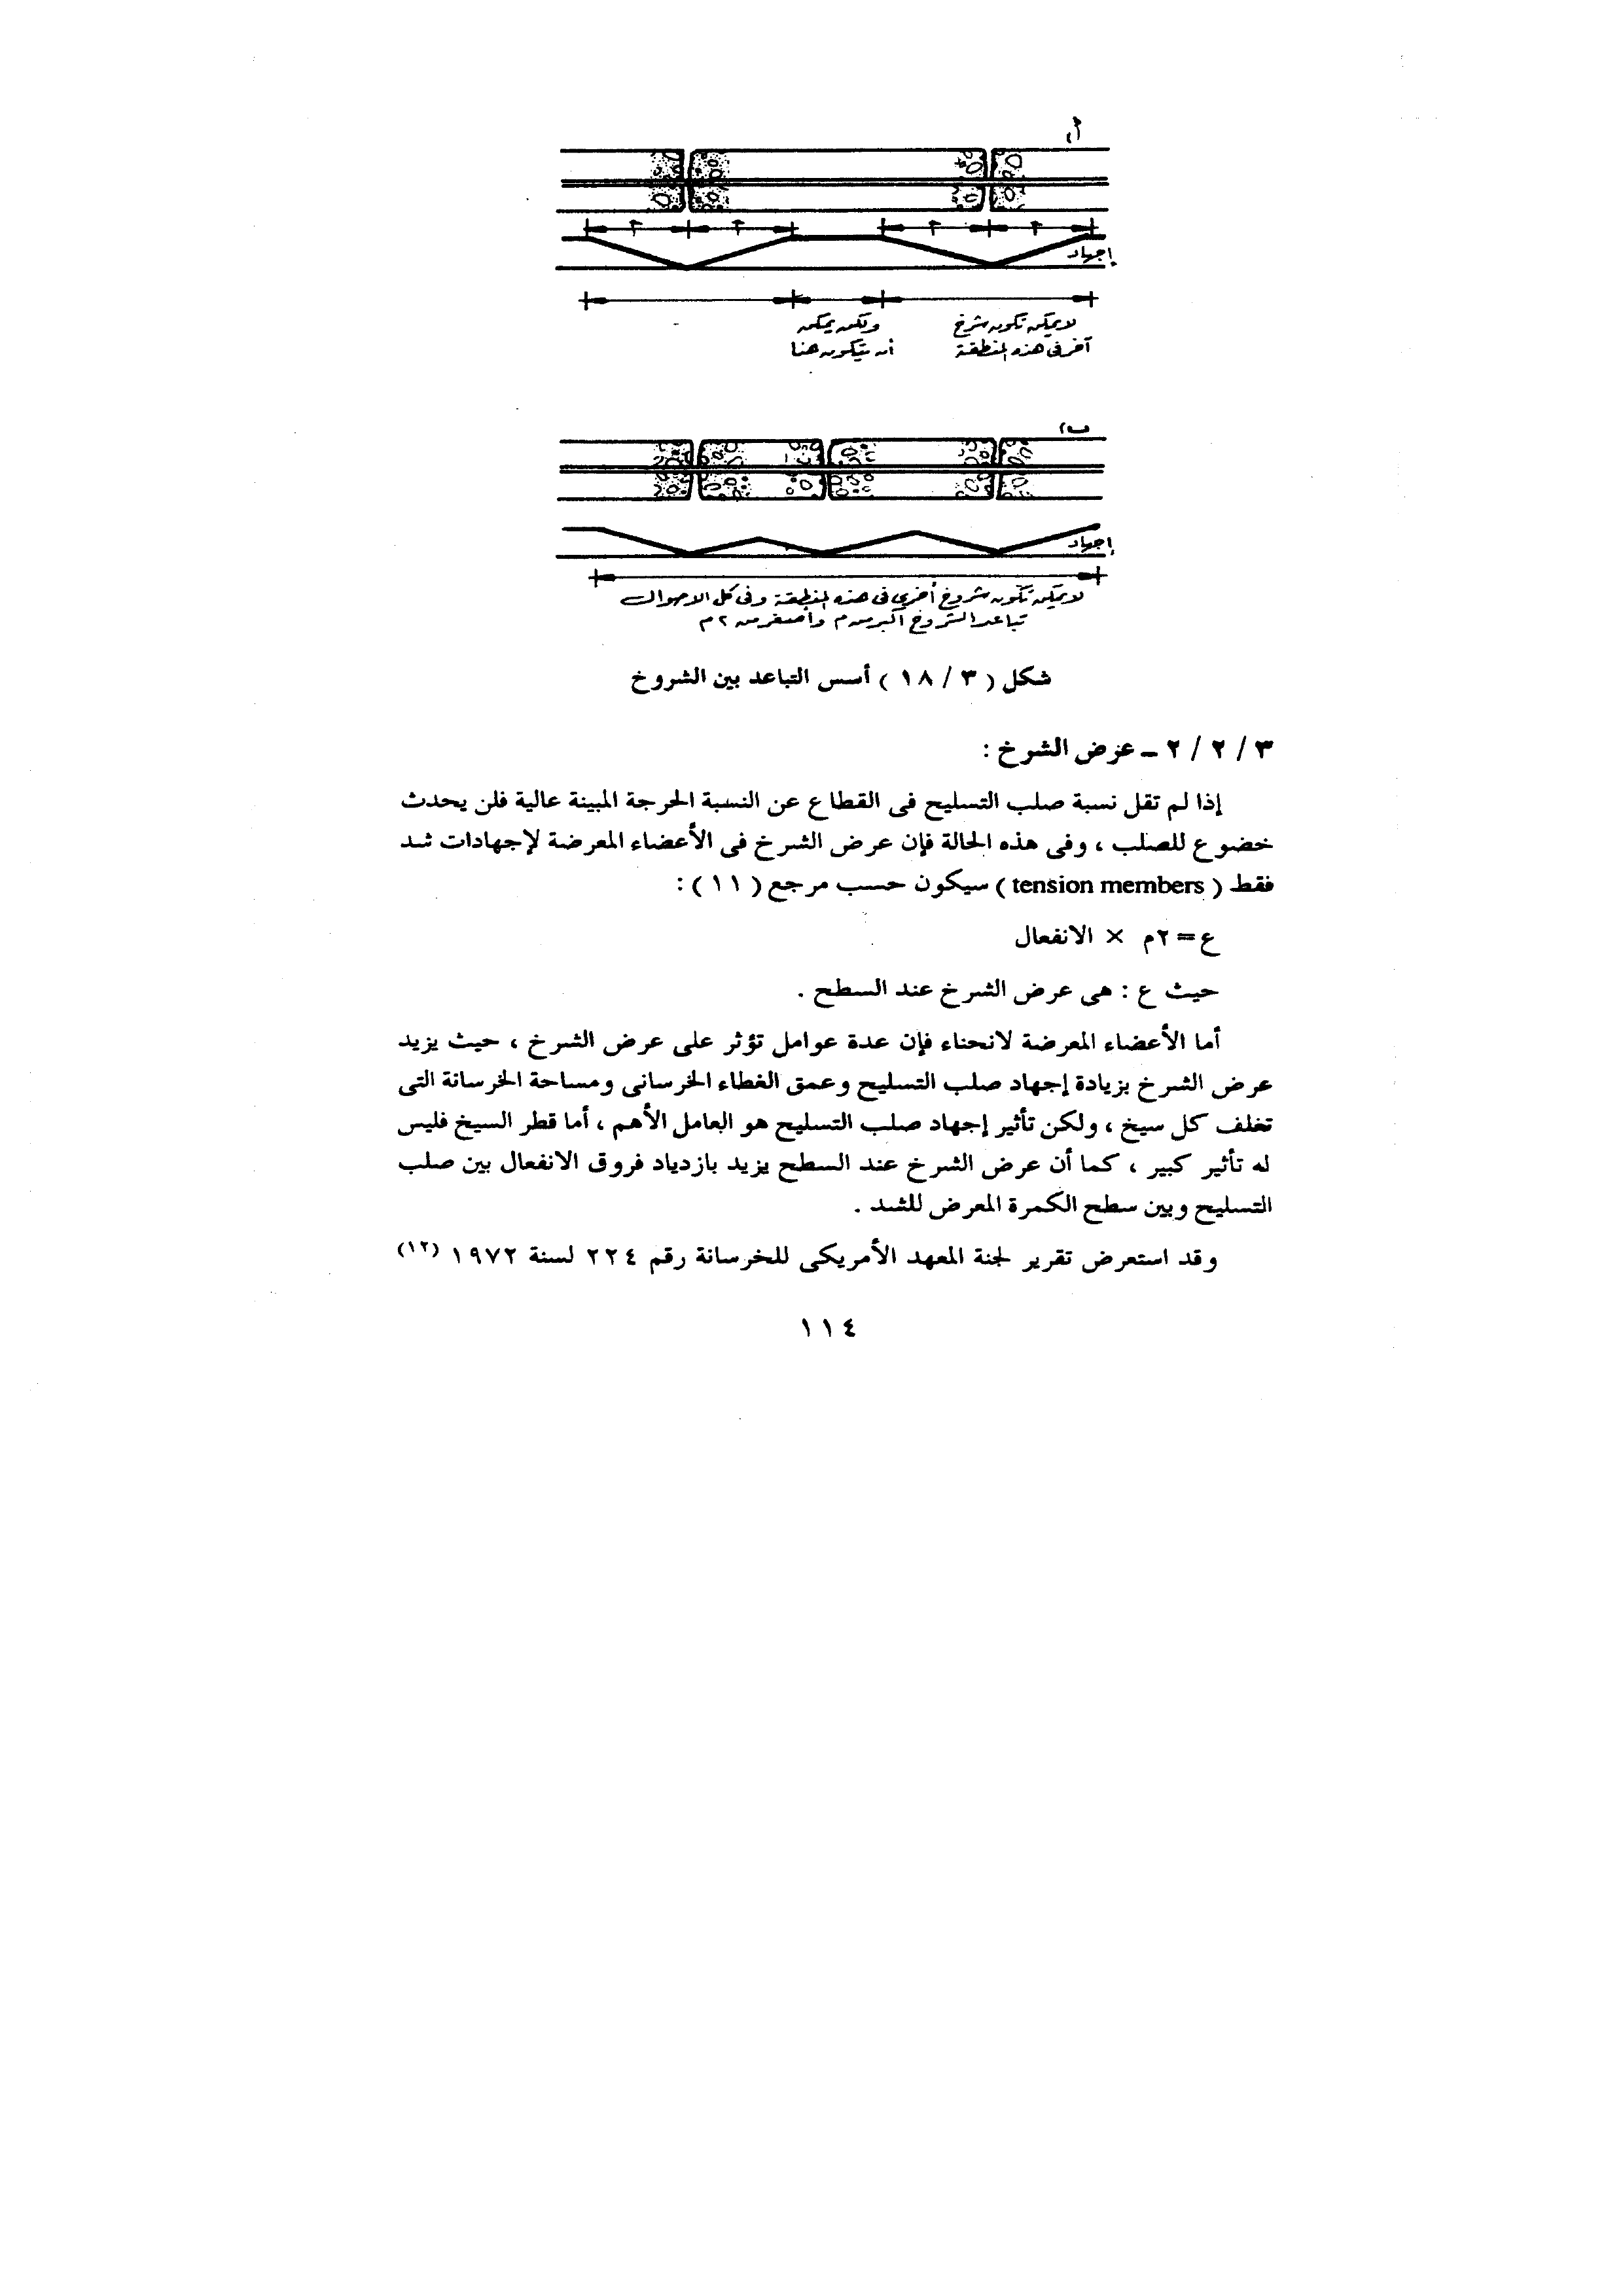 أ)
م م م م
إجهاد
لا يمكن تكون شرخ
آخر فى هذه المنطقة
ولكن يمكن
أن يتكون هنا
ب)
إجهاد
لا يمكن تكون شروخ أخرى فى هذه المنطقة وفى كل الاحوال
تباعد الشروخ أكبر من م وأصغر من ٢م
شكل ( ٣ / ١٨ ) أسس التباعد بين الشروخ
٣ / ٢ / ٢ ـ عرض الشرخ :
إذا لم تقل نسبة صلب التسليح فى القطاع عن النسبة الحرجة المبينة عالية فلن يحدث
خضوع للصلب ، وفى هذه الحالة فإن عرض الشرخ فى الأعضاء المعرضة لإجهادات شد
فقط ( tension members ) سيكون حسب مرجع ( ١١ ) :
ع = ٢م × الانفعال
حيث ع : هى عرض الشرخ عند السطح .
أما الأعضاء المعرضة لانحناء فإن عدة عوامل تؤثر على عرض الشرخ ، حيث يزيد
عرض الشرخ بزيادة إجهاد صلب التسليح وعمق الغطاء الخرسانى ومساحة الخرسانة التى
تغلف كل سيخ ، ولكن تأثير إجهاد صلب التسليح هو العامل الأهم ، أما قطر السيخ فليس
له تأثير كبير ، كما أن عرض الشرخ عند السطح يزيد بازدياد فروق الانفعال بين صلب
التسليح وبين سطح الكمرة المعرض للشد .
وقد استعرض تقرير لجنة المعهد الأمريكى للخرسانة رقم ٢٢٤ لسنة ١٩٧٢ (١٢)
١١٤